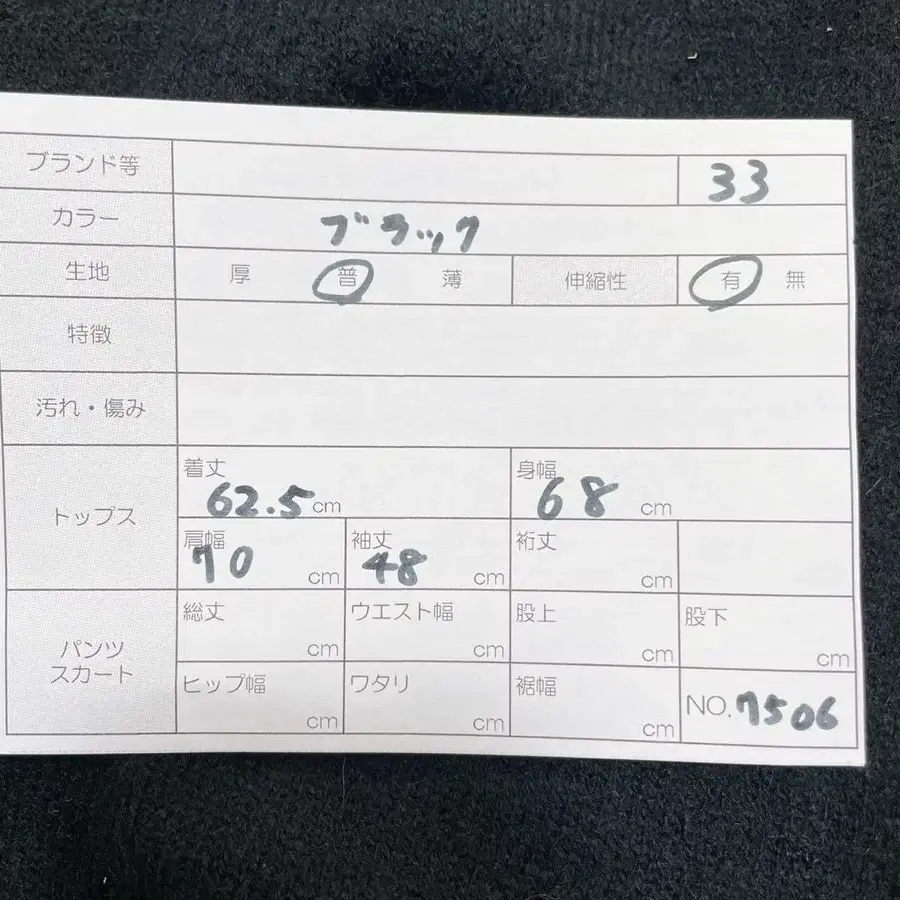 ブランド等 33
カラー ブラック
生地 厚 普 薄 伸縮性 有 無
特徴
汚れ・傷み
トップス
着丈 62.5 cm 身幅 68 cm
肩幅 70 cm 袖丈 48 cm 裄丈 cm
パンツ
スカート
総丈 cm ウエスト幅 cm 股上 cm 股下 cm
ヒップ幅 cm ワタリ cm 裾幅 cm NO. 7506